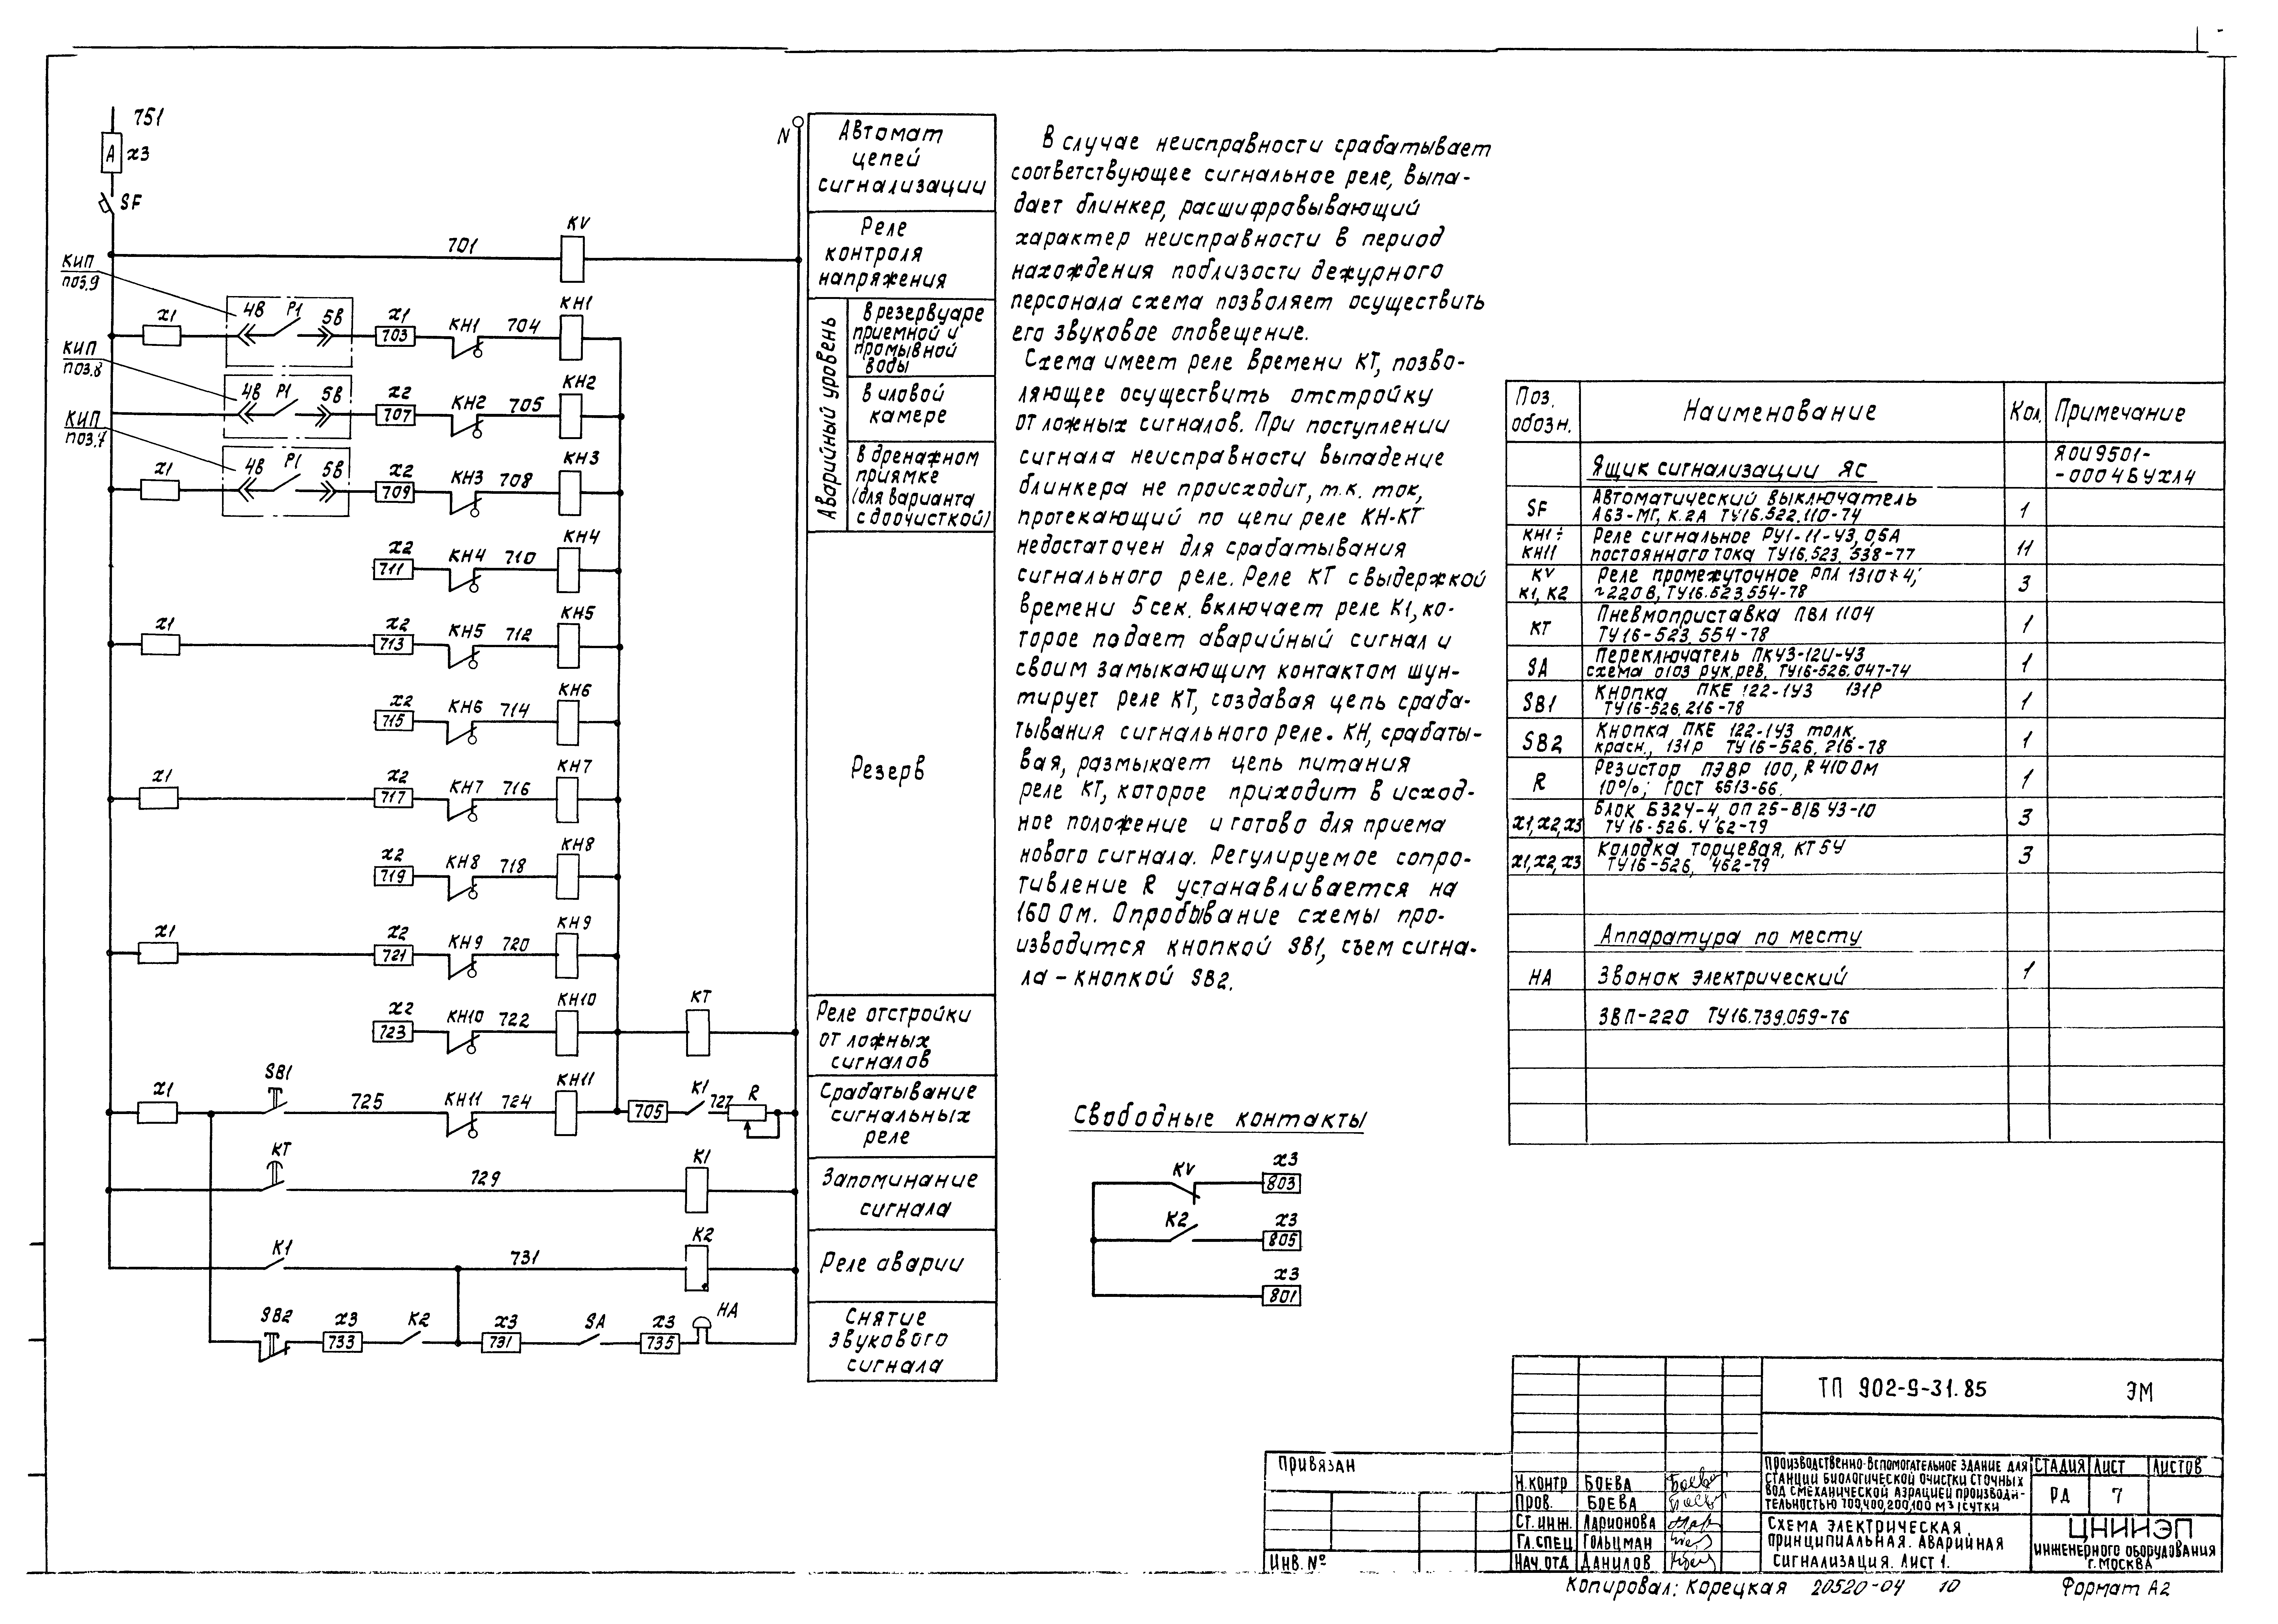 751
А х3
SF
N
701
KV
КИП
поз.9
КИП
поз.8
КИП
поз.7
х1
4В Р1 5В
х1
703
КН1 704 КН1
4В Р1 5В
х2
707
КН2 705 КН2
х1
4В Р1 5В
х2
709
КН3 708 КН3
х2
711
КН4 710 КН4
х1
х2
713
КН5 712 КН5
х2
715
КН6 714 КН6
х1
х2
717
КН7 716 КН7
х2
719
КН8 718 КН8
х1
х2
721
КН9 720 КН9
х2
723
КН10 722 КН10
КТ
х1
SB1
725
КН11 724 КН11
705
К1 727 R
КТ
729
К1
К1
731
К2
SB2
х3
733
К2
х3
731
SA
х3
735
НА
Автомат
цепей
сигнализации
Реле
контроля
напряжения
Аварийный уровень
в резервуаре
приемной и
промывной
воды
в иловой
камере
в дренажном
приямке
(для варианта
с доочисткой)
Резерв
Реле отстройки
от ложных
сигналов
Срабатывание
сигнальных
реле
Запоминание
сигнала
Реле аварии
Снятие
звукового
сигнала
В случае неисправности срабатывает
соответствующее сигнальное реле, выпа-
дает блинкер, расшифровывающий
характер неисправности в период
нахождения поблизости дежурного
персонала схема позволяет осуществить
его звуковое оповещение.
Схема имеет реле времени КТ, позво-
ляющее осуществить отстройку
от ложных сигналов. При поступлении
сигнала неисправности выпадение
блинкера не происходит, т.к. ток,
протекающий по цепи реле КН-КТ
недостаточен для срабатывания
сигнального реле. Реле КТ с выдержкой
времени 5 сек. включает реле К1, ко-
торое подает аварийный сигнал и
своим замыкающим контактом шун-
тирует реле КТ, создавая цепь сраба-
тывания сигнального реле. КН, срабаты-
вая, размыкает цепь питания
реле КТ, которое приходит в исход-
ное положение и готово для приема
нового сигнала. Регулируемое сопро-
тивление R устанавливается на
160 Ом. Опробывание схемы про-
изводится кнопкой SB1, съем сигна-
ла - кнопкой SB2.
Свободные контакты
KV
х3
803
К2
х3
805
х3
801
Поз. обозн. Наименование Кол. Примечание
Ящик сигнализации ЯС ЯОИ9501-
-0004БУХЛ4
SF Автоматический выключатель
А63-МГ, К.2А ТУ16.522.110-74 1
КН1÷ КН11 Реле сигнальное РУ1-11-У3, 0,5А
постоянного тока ТУ16.523.538-77 11
KV К1, К2 Реле промежуточное РПЛ 1310*4;
~220В, ТУ16.523.554-78 3
КТ Пневмоприставка ПВЛ 1104
ТУ16-523.554-78 1
SA Переключатель ПКУ3-12И-У3
схема 0103 рук.рев. ТУ16-526.047-74 1
SB1 Кнопка ПКЕ 122-1У3 131Р
ТУ16-526.216-78 1
SB2 Кнопка ПКЕ 122-1У3 толк.
красн., 131р ТУ16-526.216-78 1
R Резистор ПЭВР 100, R 410 Ом
10%; ГОСТ 6513-66. 1
х1, х2, х3 Блок Б324-4, ОП 25-В/В У3-10
ТУ16-526.462-79 3
х1, х2, х3 Колодка торцевая, КТ5У
ТУ16-526, 462-79 3
Аппаратура по месту
НА Звонок электрический 1
ЗВП-220 ТУ16.739.059-76
ТП 902-9-31.85 ЭМ
Привязан
Инв. №
Н.контр Боева
Пров. Боева
Ст.инж. Ларионова
Гл.спец Гольцман
Нач.отд Данилов
Производственно-вспомогательное здание для
станции биологической очистки сточных
вод с механической аэрацией производи-
тельностью 700,400,200,100 м3/сутки
Стадия Лист Листов
РД 7
Схема электрическая
принципиальная. Аварийная
сигнализация. Лист 1.
ЦНИИЭП
инженерного оборудования
г. Москва
Копировал: Корецкая 20520-04 10 Формат А2